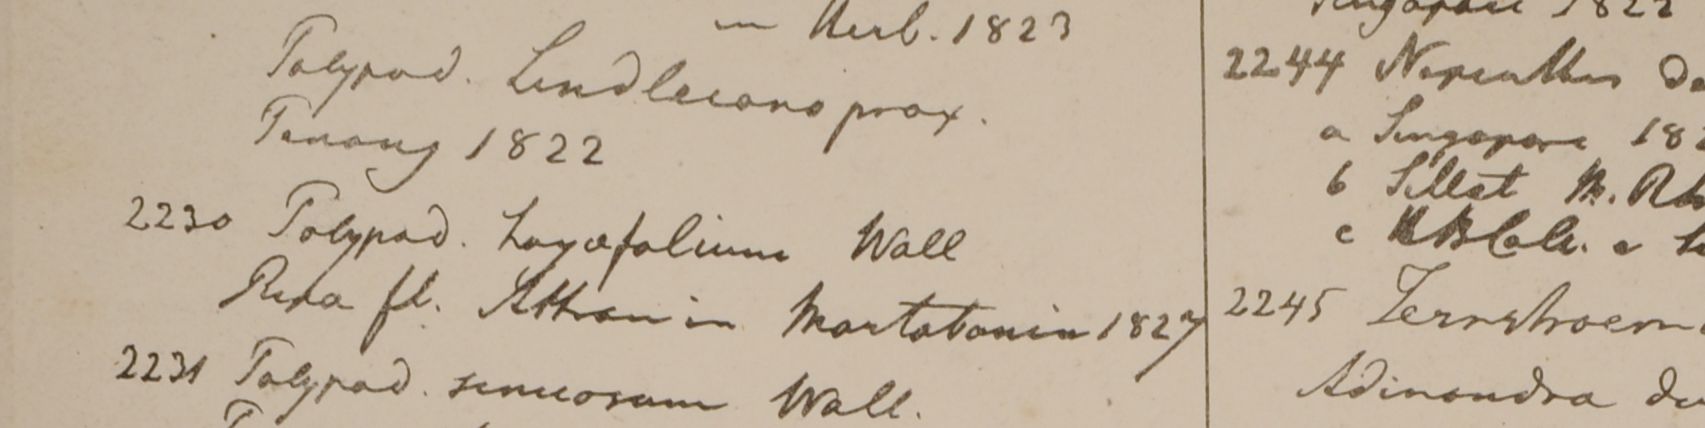 — Herb. 1823
Polypod. Lindleiano prox.
Penang 1822
2230 Polypod. hoyæfolium Wall
Ripa fl. Attran in Martabania 1827
2231 Polypod. sinuosum Wall.
Singapore 1822
2244 Nepenthes
a Singapore 18
b Sillet M.
c
2245 Ternstroem
Adinandra du